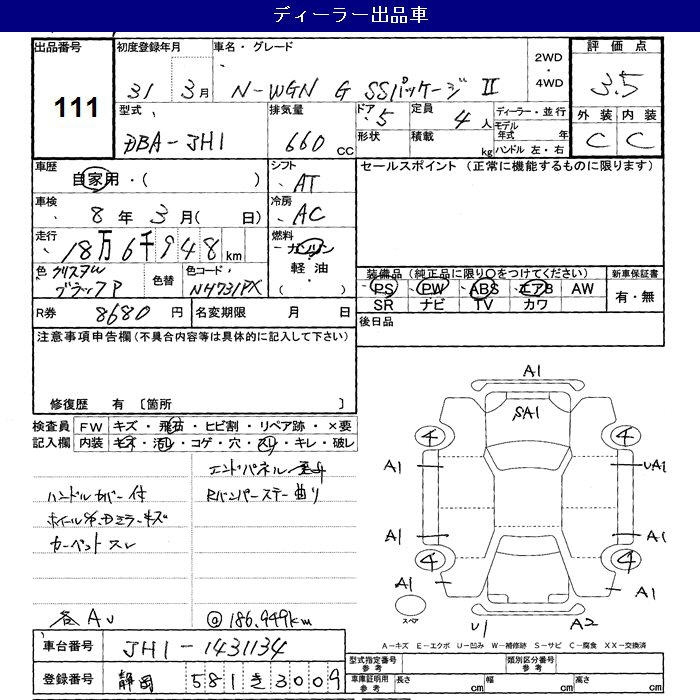 ディーラー出品車
出品番号 初度登録年月 車名・グレード 2WD ・ 4WD 評価点
111
31 3月 N-WGN G SSパッケージ II 3.5
型式 排気量 ドア 定員 ディーラー・並行 外装 内装
DBA-JH1 660 CC 5 4人 モデル年式 年 C C
形状 積載 kg ハンドル 左・右
車歴 シフト セールスポイント (正常に機能するものに限ります)
自家用・( ) AT
車検 冷房
8年 3月( 日) AC
走行 燃料
18万6千948km ガソリン
軽油
( )
色 クリスタル ブラックP 色替 色コード NH731PX
装備品(純正品に限り○をつけてください) 新車保証書
PS PW ABS エアB AW 有・無
SR ナビ TV カワ
R券 8680 円 名変期限 月 日 後日品
注意事項申告欄(不具合内容等は具体的に記入して下さい)
修復歴 有 〔箇所 〕
検査員 FW キズ・飛石・ヒビ割・リペア跡・×要
記入欄 内装 キズ・汚レ・コゲ・穴・スレ・キレ・破レ
エンドパネル
ハンドルカバー付 Rバンパーステー曲り
カーペットスレ
各AU @186.949km
A1
SA1
4 4
A1 UA1
A1 A1
4 4
A1 A1
スペア
U1 A2
A-キズ E-エクボ U-凹み W-補修跡 S-サビ C-腐食 XX-交換済
車台番号 JH1-1431134
型式指定番号 参考 類別区分番号 参考
登録番号 静岡 581 き 3009
車庫証明用 参考 長さ cm 幅 cm 高さ cm